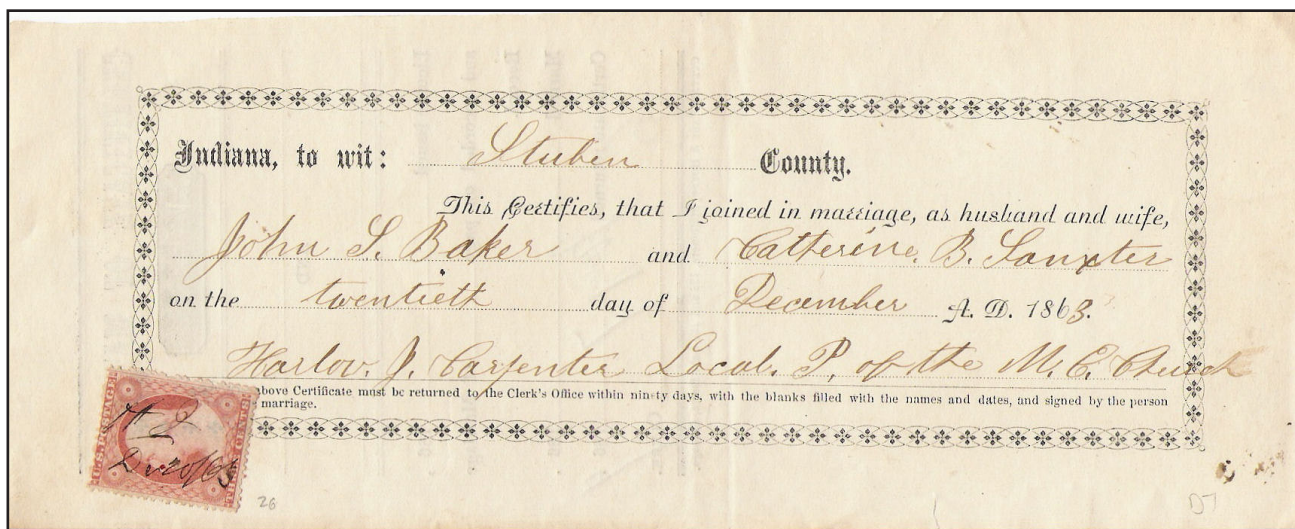 Indiana, to wit: Stuben County.
This Certifies, that I joined in marriage, as husband and wife,
John S. Baker and Catherine. B. Sanxter
on the twentieth day of December A. D. 1863.
Harlow. J. Carpenter Local. P. of the M. E. Church
above Certificate must be returned to the Clerk's Office within ninety days, with the blanks filled with the names and dates, and signed by the person
marriage.
U.S. POSTAGE
THREE CENTS
Dec 20/63
26
D7